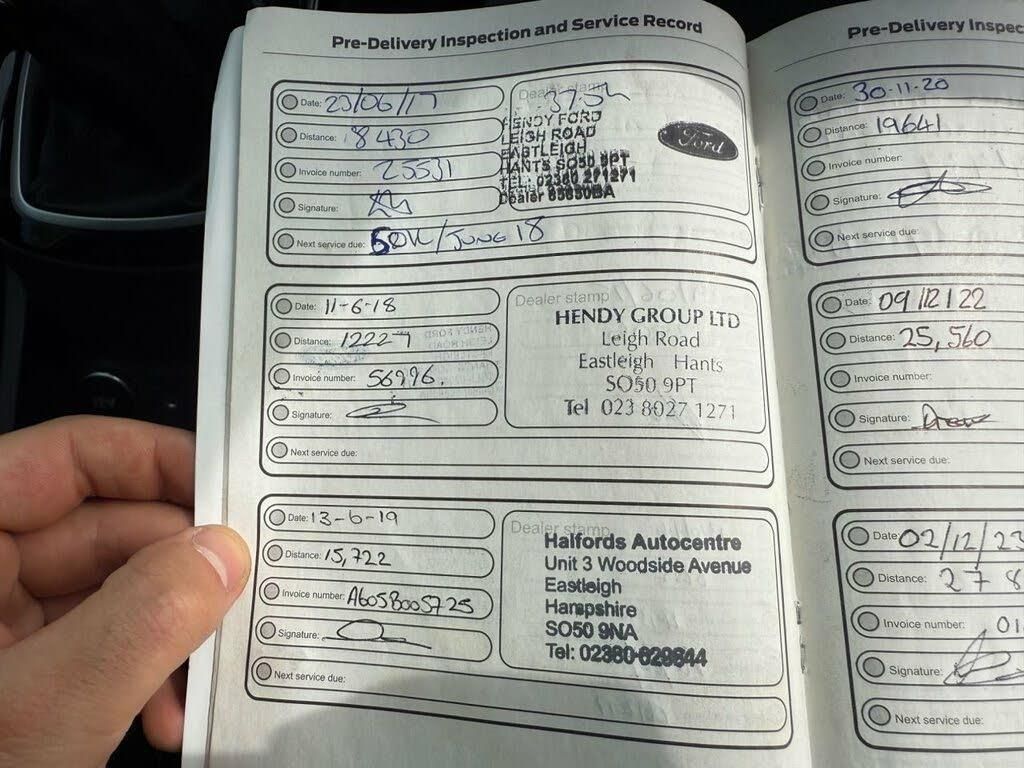 Pre-Delivery Inspection and Service Record
Date: 23/06/17
Distance: 8430
Invoice number: 25531
Signature:
Next service due: 50K/JUNE 18
Dealer stamp
HENDY FORD
LEIGH ROAD
EASTLEIGH
HANTS SO50 9PT
TEL: 02380 271271
Dealer 85830BA
Ford
Date: 11-6-18
Distance: 12227
Invoice number: 56996.
Signature:
Next service due:
Dealer stamp
HENDY GROUP LTD
Leigh Road
Eastleigh Hants
SO50 9PT
Tel 023 8027 1271
Date: 13-6-19
Distance: 15,722
Invoice number: A605B005725
Signature:
Next service due:
Dealer stamp
Halfords Autocentre
Unit 3 Woodside Avenue
Eastleigh
Hampshire
SO50 9NA
Tel: 02380-629844
Pre-Delivery Inspec
Date: 30-11-20
Distance: 19641
Invoice number:
Signature:
Next service due:
Date: 09/12/22
Distance: 25,560
Invoice number:
Signature:
Next service due:
Date: 02/12/23
Distance: 278
Invoice number: 01
Signature:
Next service due: